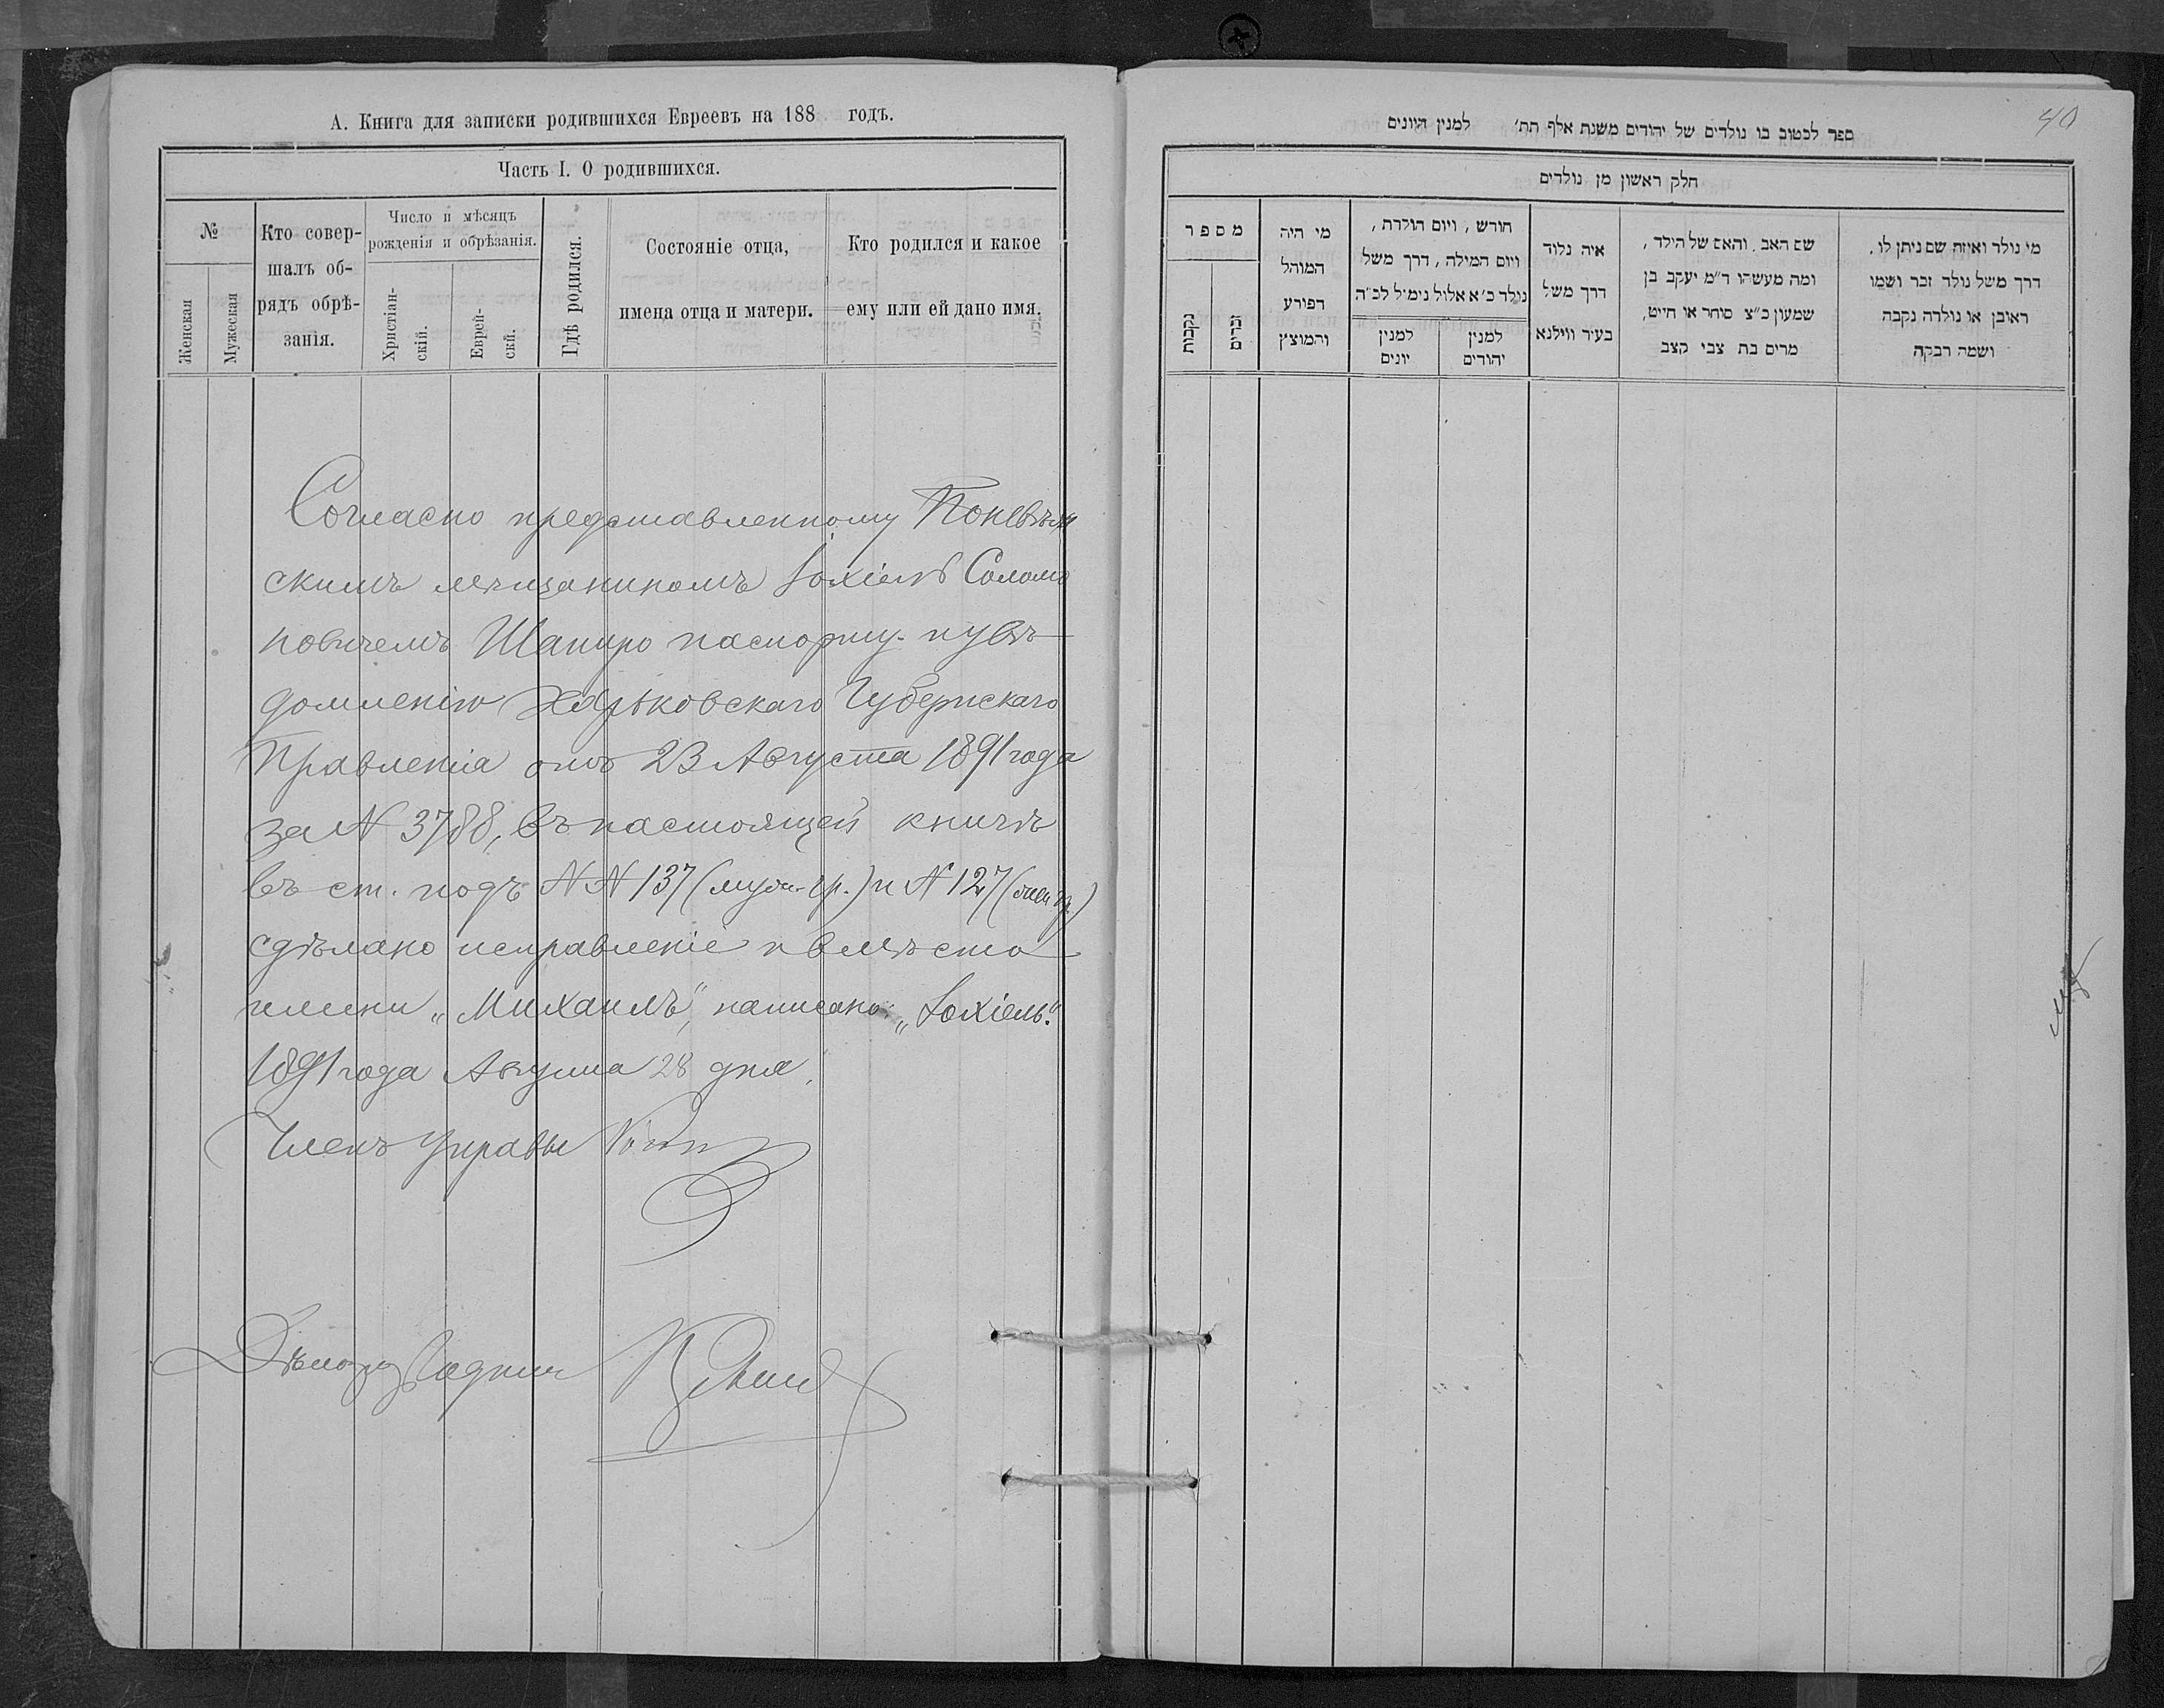 А. Книга для записки родившихся Евреевъ на 188 годъ.
Часть I. О родившихся.
№
Женская
Мужеская
Кто совер-
шалъ об-
рядъ обрѣ-
занія.
Число и мѣсяцъ
рожденія и обрѣзанія.
Христіан-
скій.
Еврей-
скй.
Гдѣ родился.
Состояніе отца,
имена отца и матери.
Кто родился и какое
ему или ей дано имя.
Согласно представленному Поневѣж
скимъ мѣщаниномъ Іохіель Соломо
новичемъ Шапиро паспорту. и увѣ
домленію Харьковскаго Губернскаго
Правленія отъ 23 Августа 1891 года
за N 3788, въ настоящей книгѣ
въ ст. подъ N N 137 (муж. гр.) и N 127 (жен гр.)
сдѣлано исправленіе и вмѣсто
имени „Михаилъ", написано: „Іохіель".
1891 года Августа 28 дня.
Членъ Управы
Дѣлопроизводитель
40
ספר לכטוב בו נולדים של יהודים משנת אלף תת׳ למנין היונים
חלק ראשון מן נולדים
מספר
נקבות
זכרים
מי היה
המוהל
הפורע
והמוצץ
חורש, ויום הולדת,
ויום המילה, דרך משל
נולד כ״א אלול נימיל לכ״ה
למנין
יונים
למנין
יהודים
איה נלוד
דרך משל
בעיר ווילנא
שם האב, והאם של הילד,
ומה מעשהו ד״מ יעקב בן
שמעון כ״צ סוחר או חייט,
מרים בת צבי קצב
מי נולד ואיזה שם ניתן לו.
דרך משל נולד זכר ושמו
ראובן או נולדה נקבה
ושמה רבקה